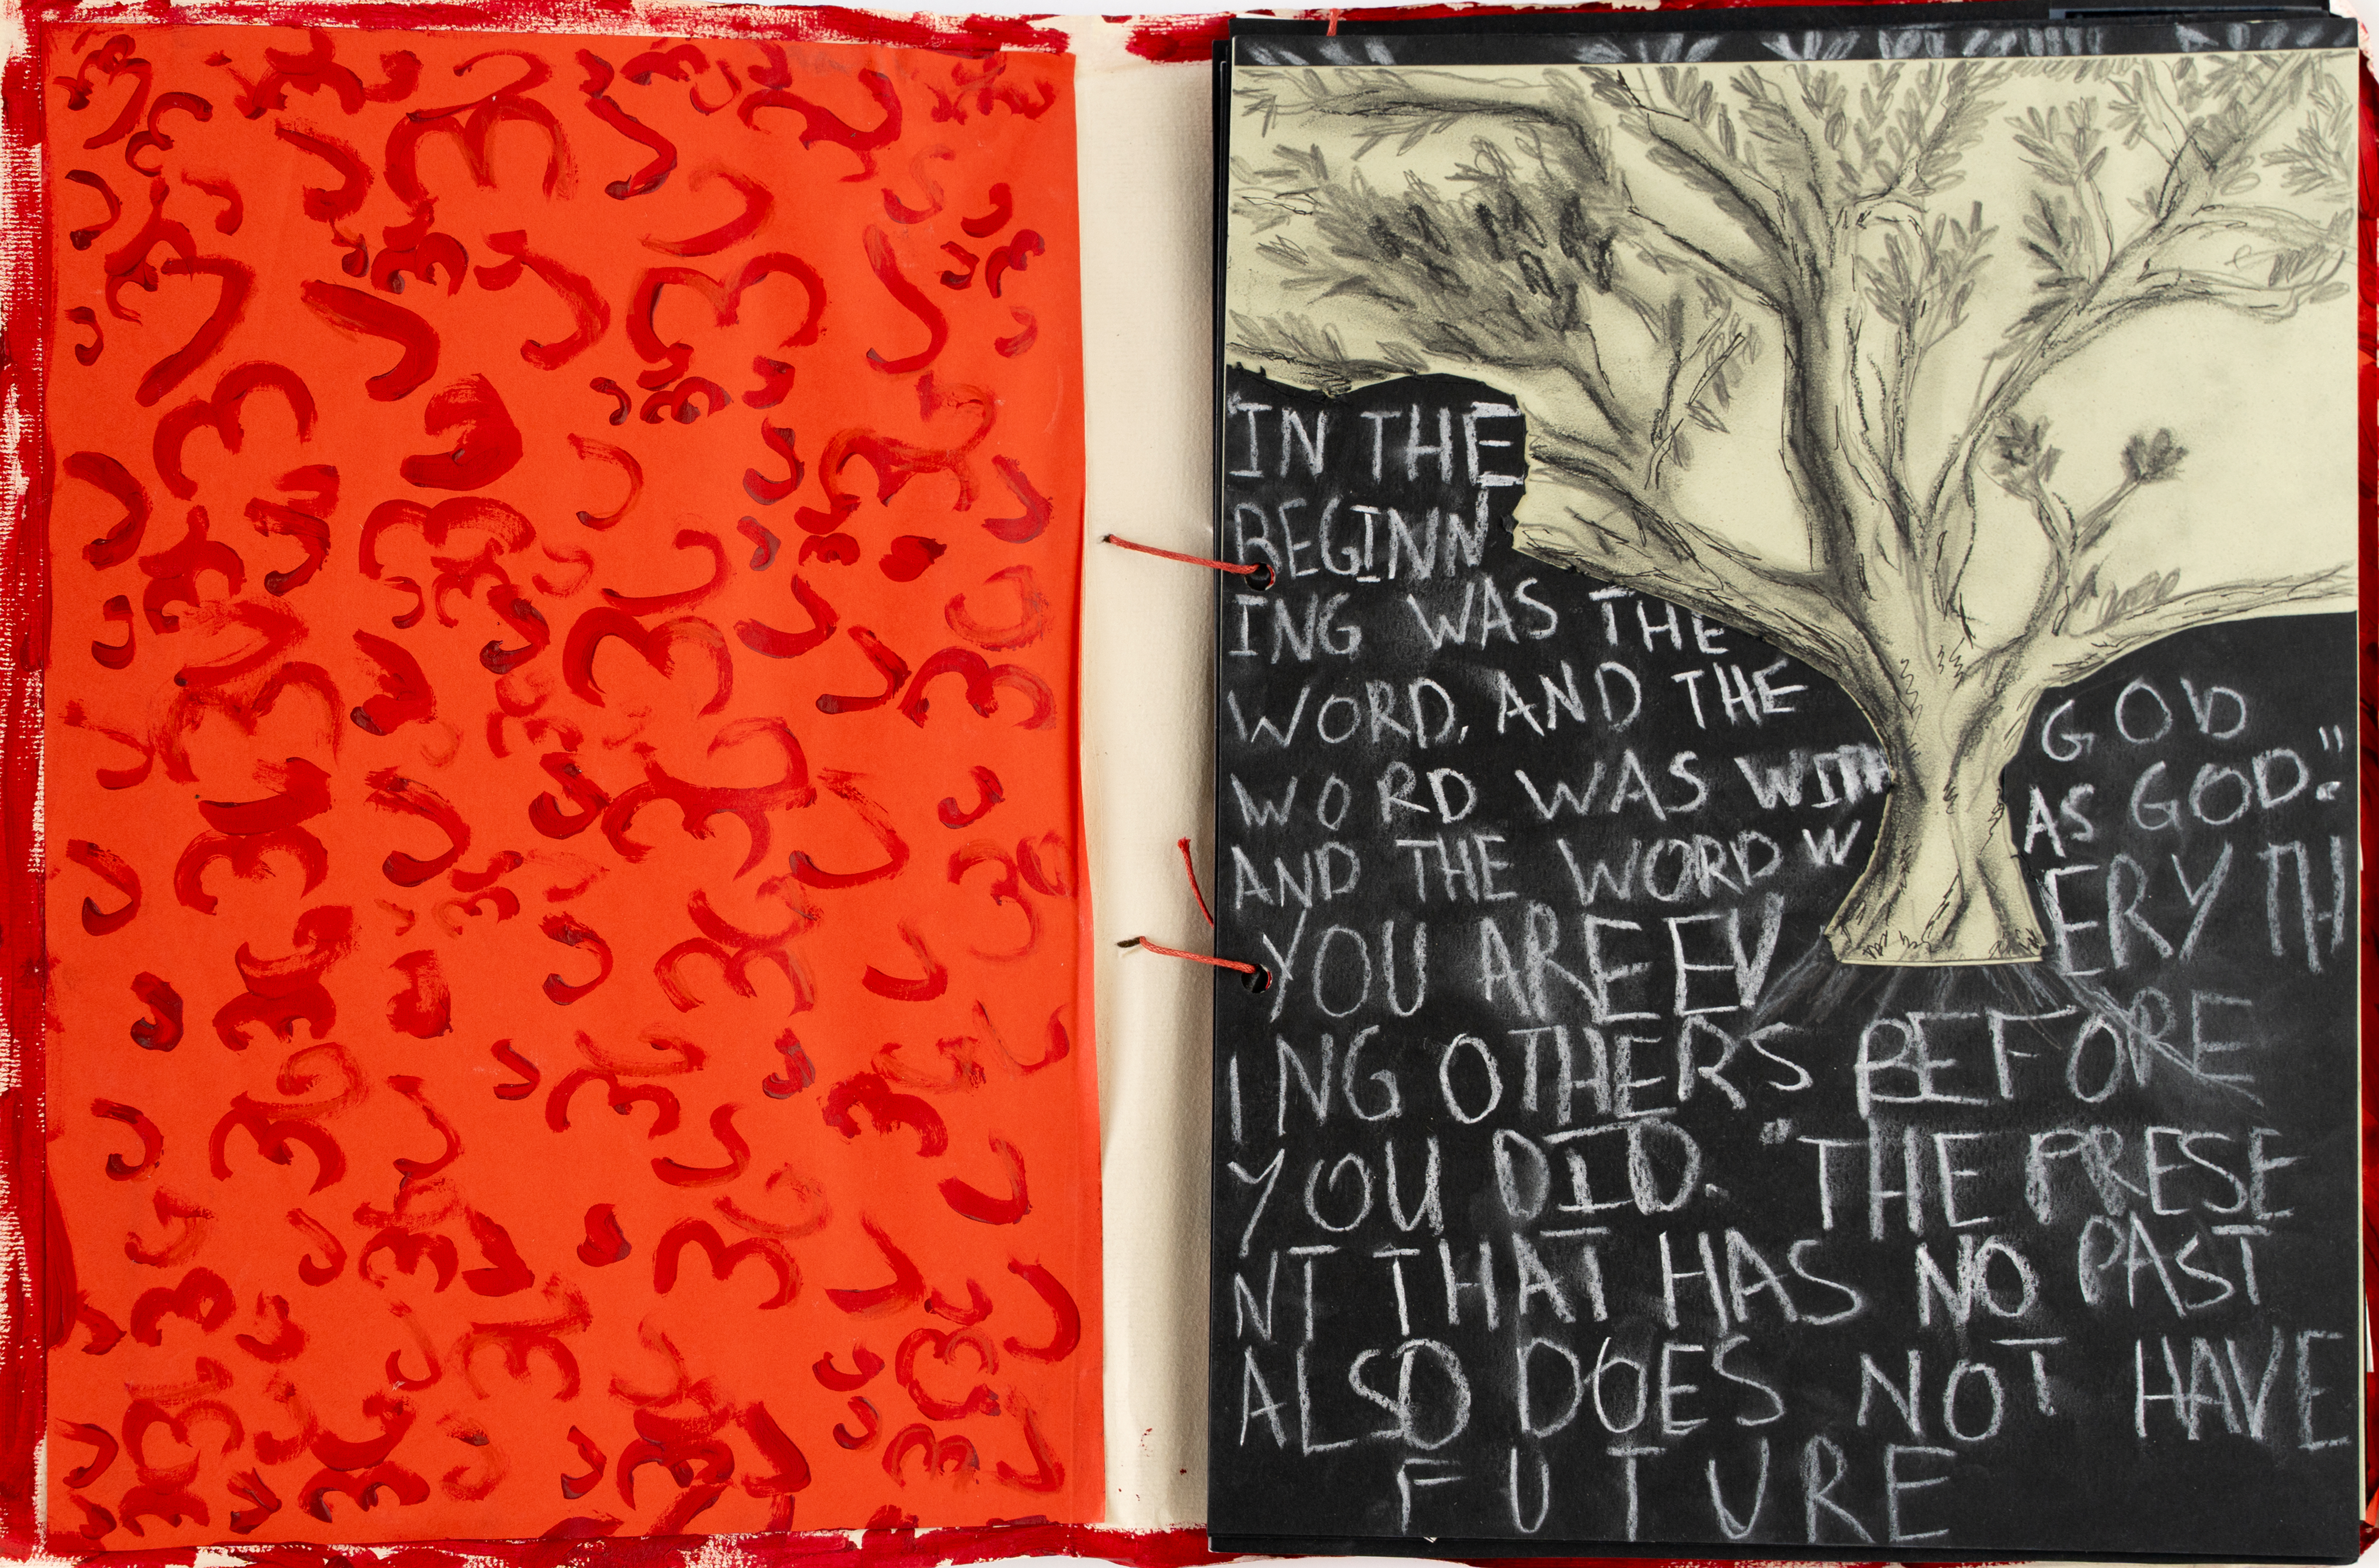 "IN THE
BEGINN
ING WAS THE
WORD, AND THE
WORD WAS WITH GOD
AND THE WORD WAS GOD."
YOU ARE EVERYTH
ING OTHERS BEFORE
YOU DID. "THE PRESE
NT THAT HAS NO PAST
ALSO DOES NOT HAVE
FUTURE